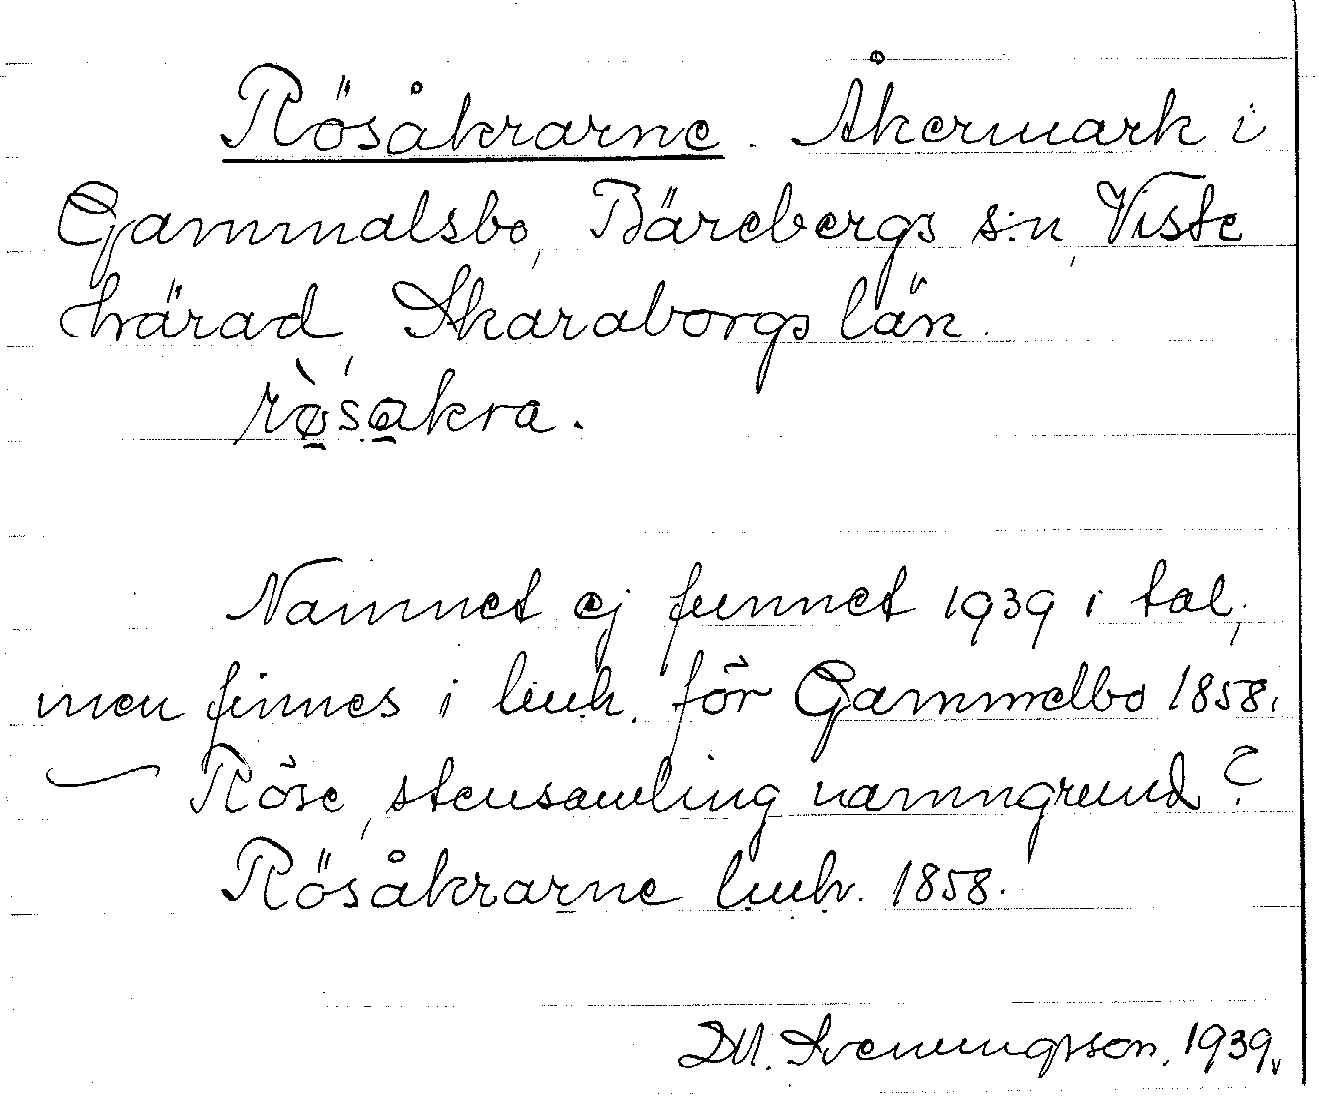 Rösåkrarne. Åkermark i
Gammalsbo, Bärebergs s:n, Viste
härad, Skaraborgs län.
rø̀sakra.
Namnet ej funnet 1939 i tal,
men finnes i liuh. för Gammelbo 1858.
Röse, stensamling namngrund?
Rösåkrarne liuh. 1858.
D.M. Sveningsson. 1939.